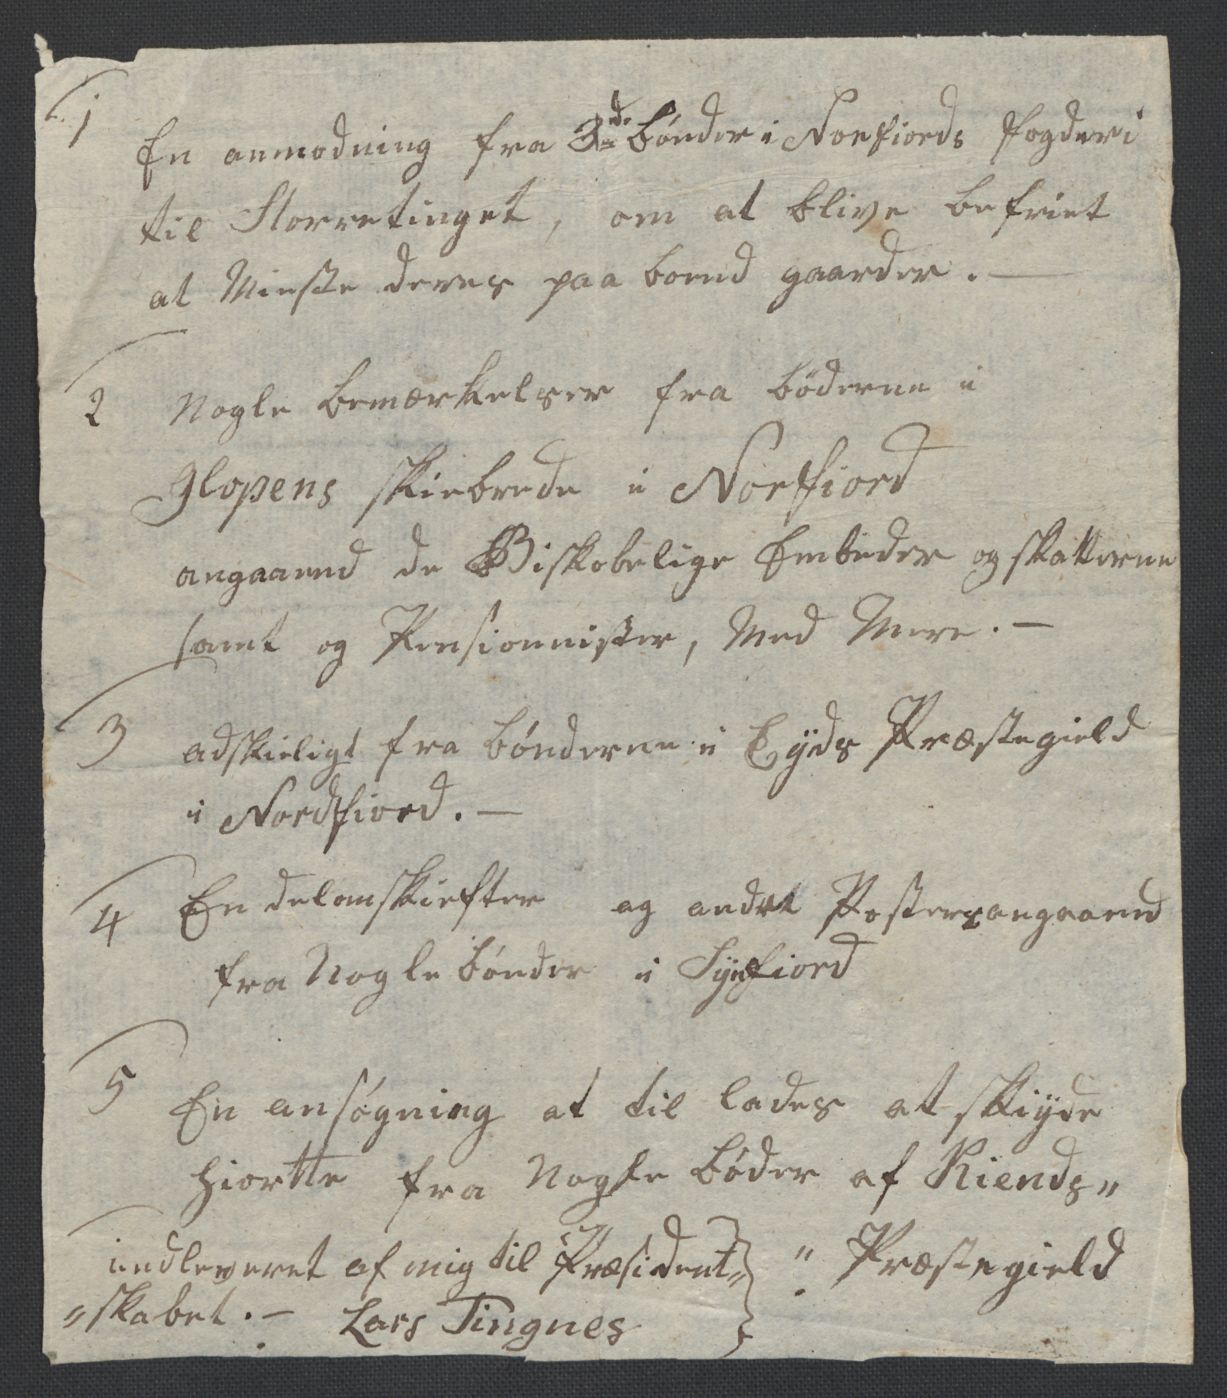 1
En anmodning fra 3de bønder i Norfiords fogderi
til Storretinget, om at blive befriet
at Mieste deres paa boend gaarder. —
2 Nogle bemærkelser fra böderne i
Glopens skiebrede i Norfiord
angaaend de Biskobelige Embeder og skatterne
samt og Pensionnister, Med Mere. —
3 adskieligt fra bønderne i Eyds Præstegield
i Nordfiord. —
4 En del omskiefter og andre Poster angaaend
fra Nogle bønder i Synfiord
5
En ansøgning at til lades at skiyde
hiortte fra Nogle bøder af Kiends„
„ Præstegield
indleveret af mig til Præsident„
„skabet. — Lars Tingnes